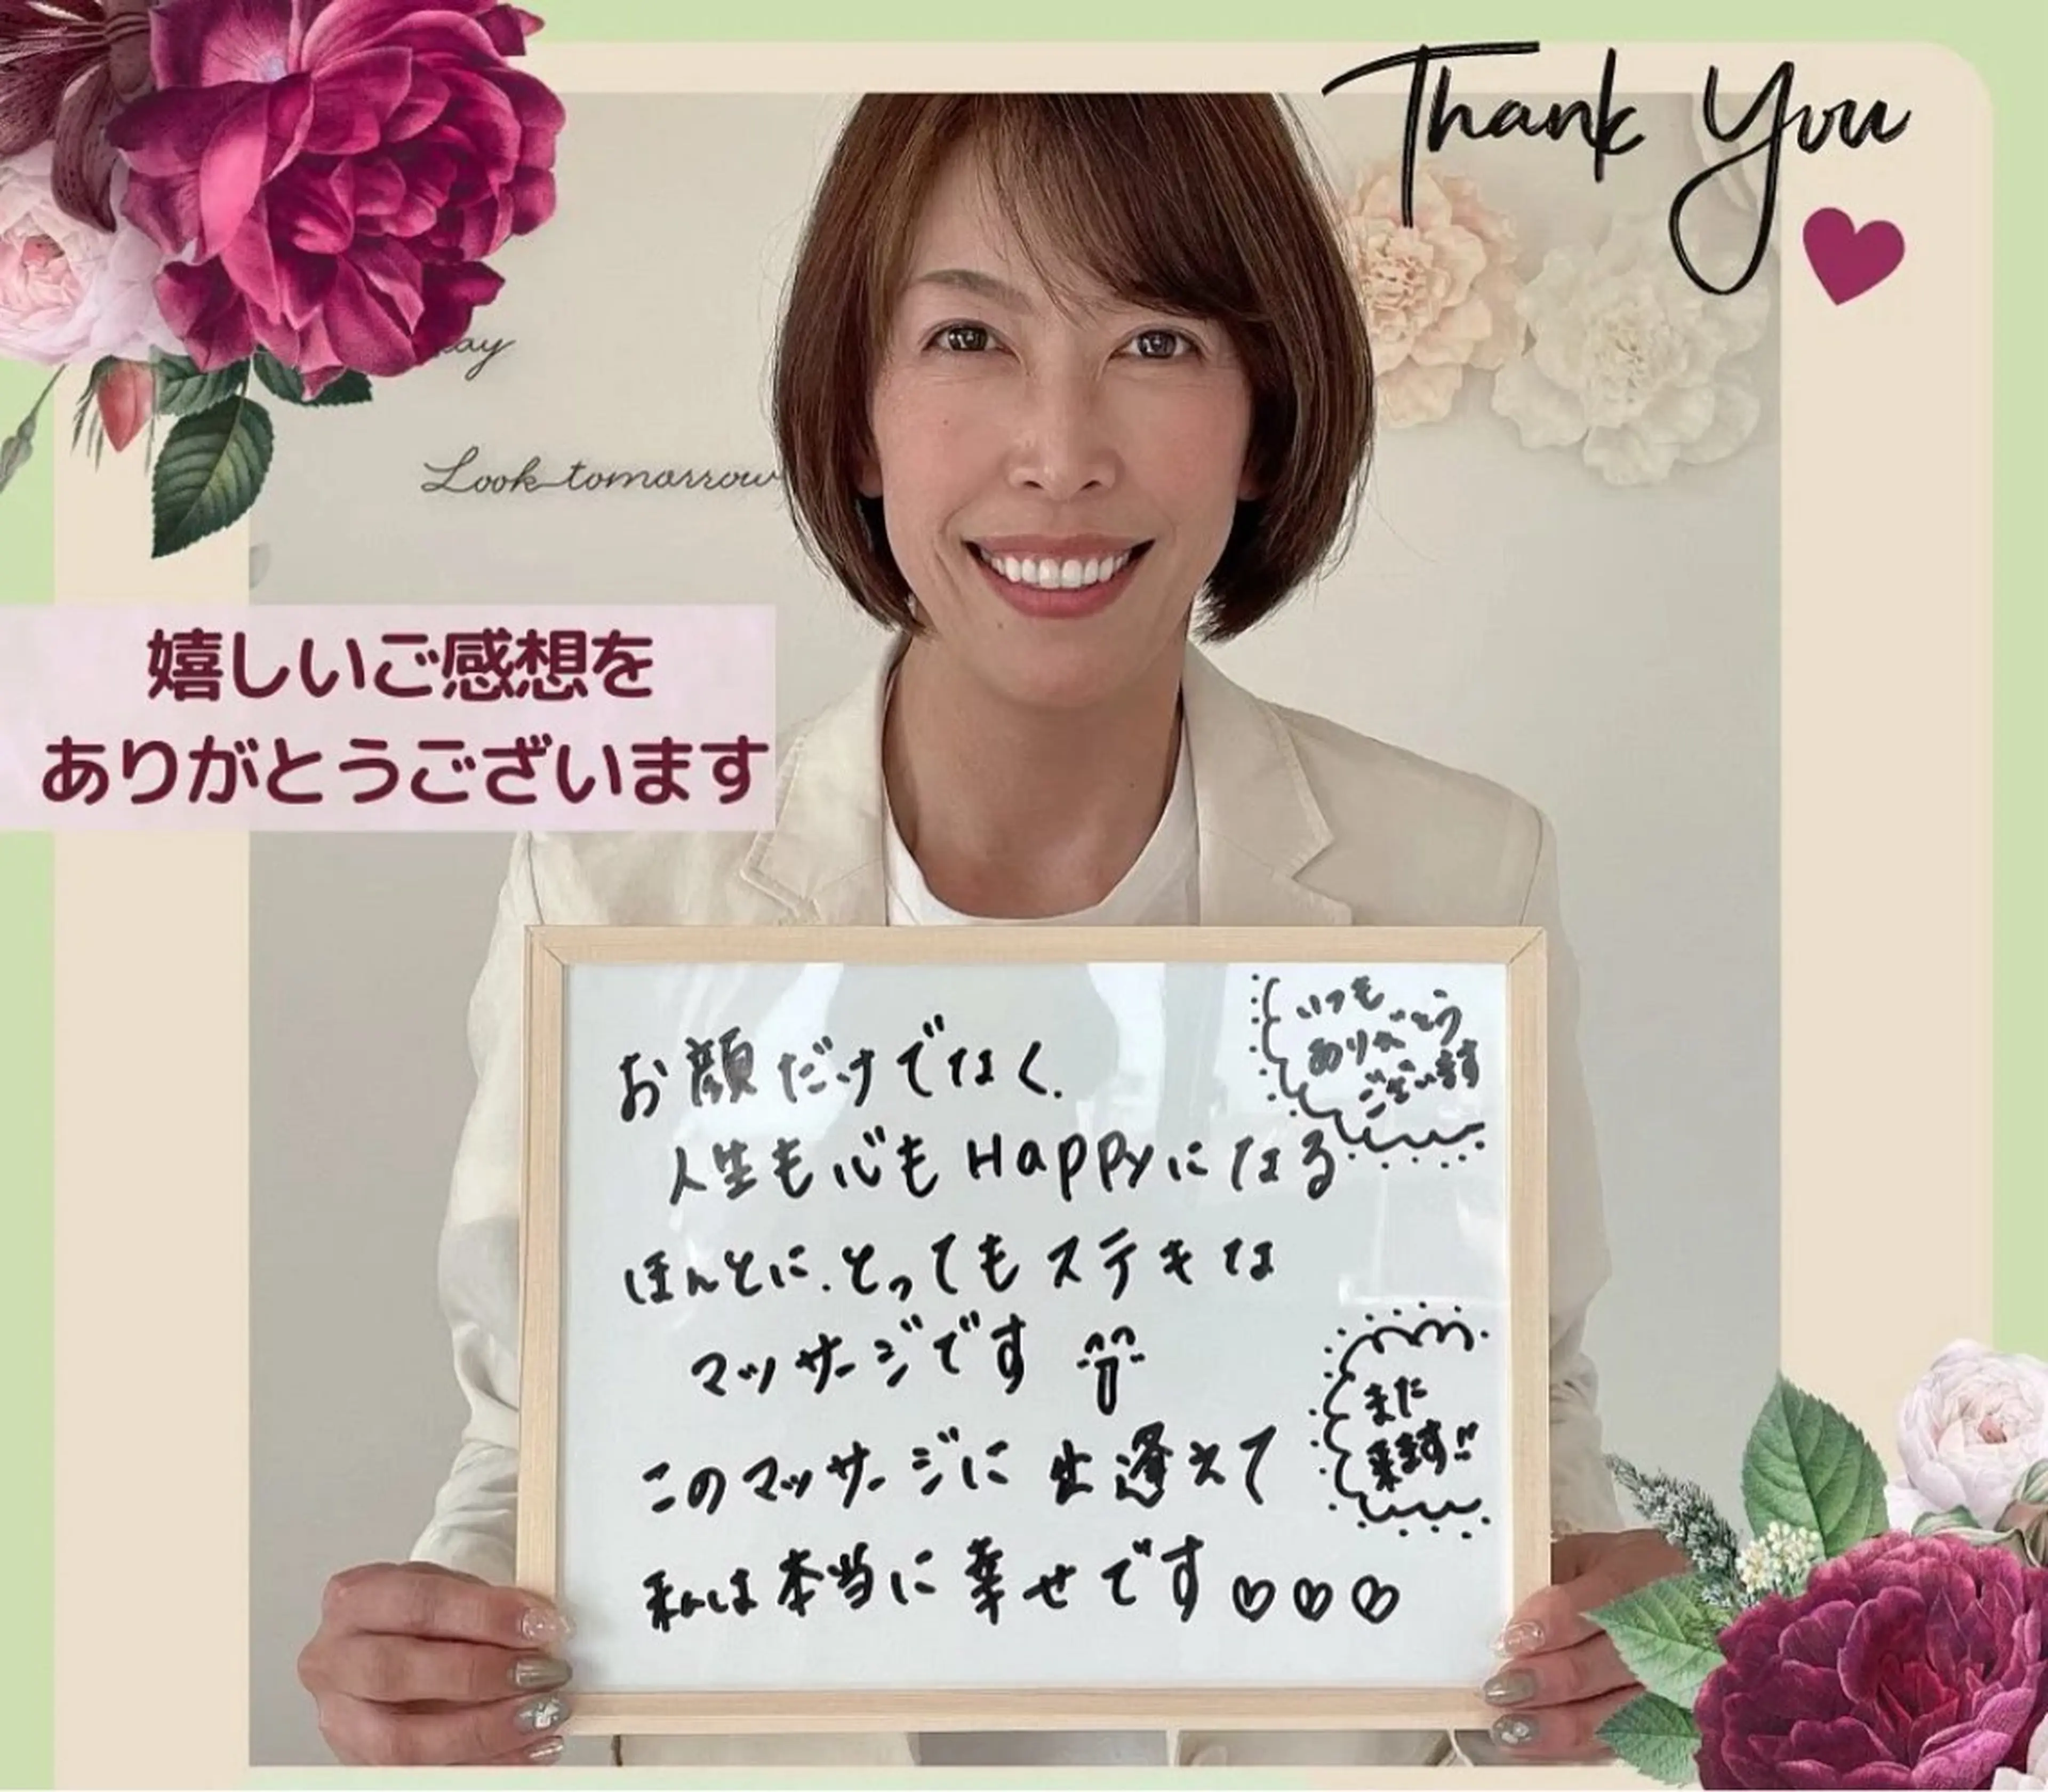 Thank You
ay
Look tomorrow
嬉しいご感想を
ありがとうございます
いつも
ありがとう
ございます
お顔だけでなく.
人生も心もHappyになる
ほんとに.とってもステキな
マッサージです
このマッサージに出逢えて
私は本当に幸せです♡♡♡
また
来ます!!